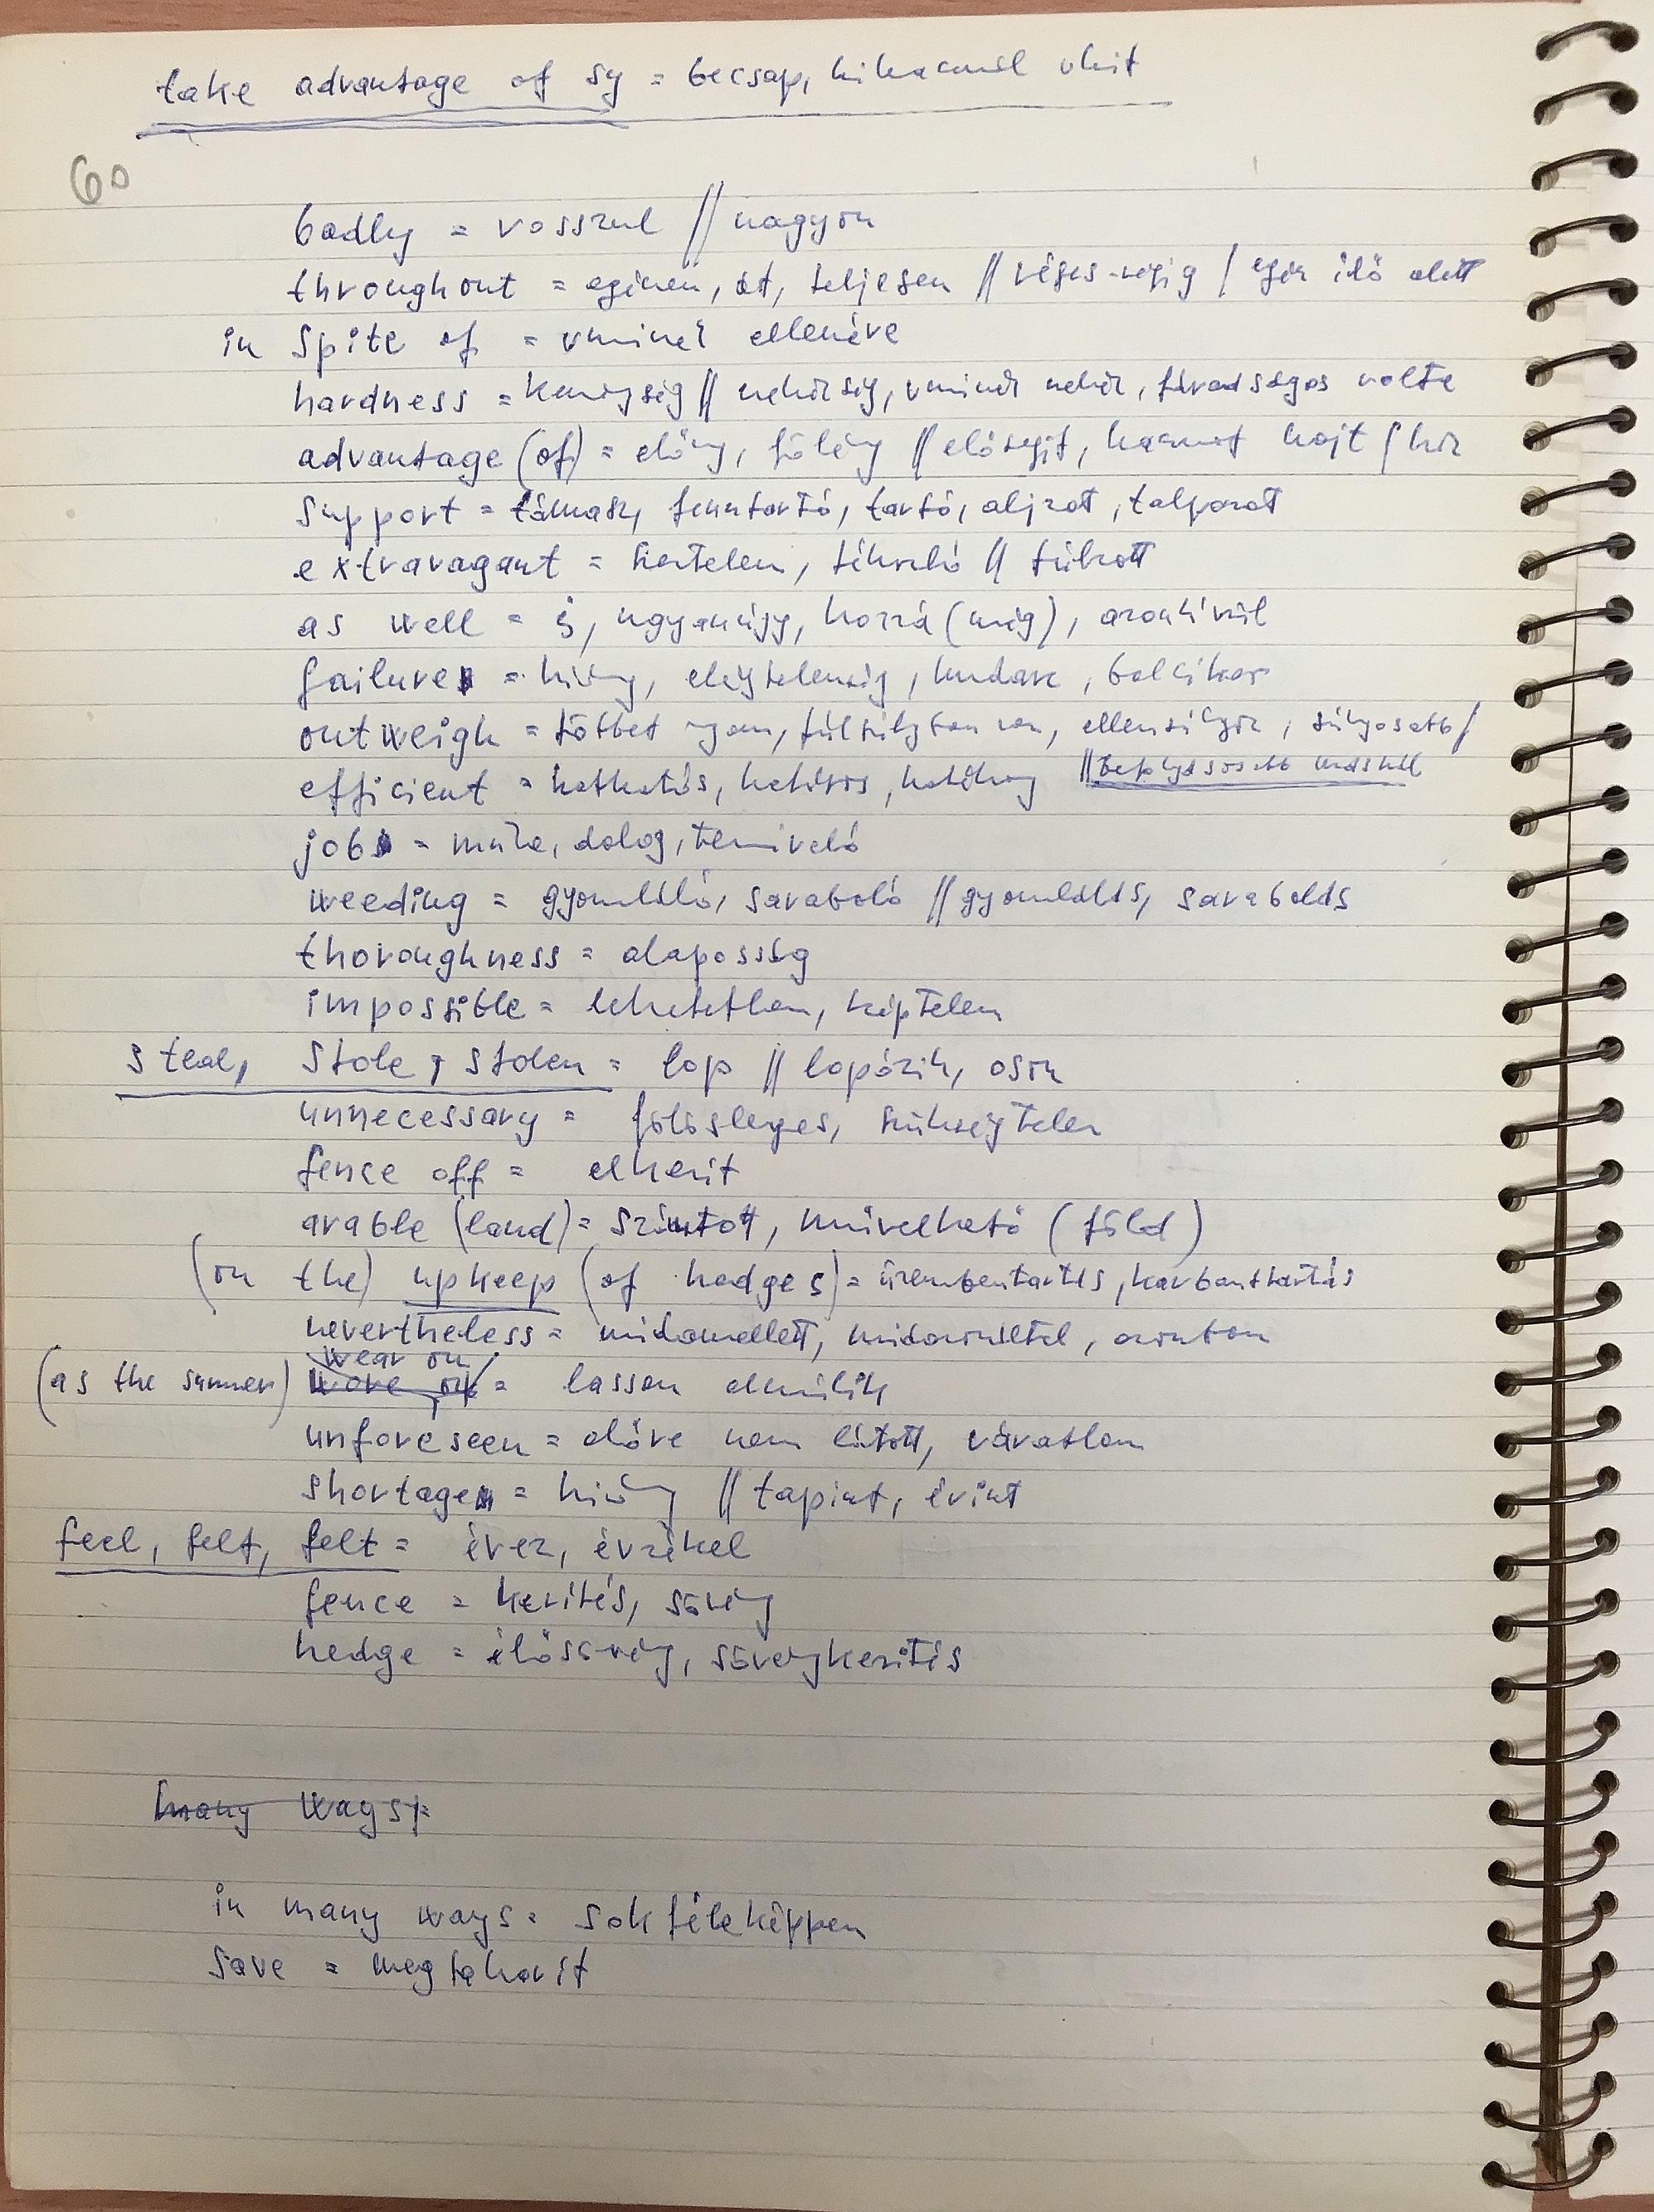 take advantage of sy = becsap, kihasznál vkit
60
badly = rosszul // nagyon
throughout = egészen, át, teljesen // véges-végig / egész idő alatt
in spite of = vminek ellenére
hardness = keménység // nehézség, vminek nehéz, fáradságos volta
advantage (of) = előny, fölény // elősegít, hasznot hajt /
support = támasz, fenntartó, tartó, aljzat, talpazat
extravagant = féktelen, tékozló // túlzott
as well = is, ugyanúgy, hozzá (még), azonkívül
failure = hiány, elégtelenség, kudarc, balsiker
outweigh = többet nyom, túlsúlyban van, ellensúlyoz, súlyosabb /
// befolyásosabb másnál
efficient = hathatós, hatásos, hatékony
job = munka, dolog, tennivaló
weeding = gyomláló, saraboló // gyomlálás, sarabolás
thoroughness = alaposság
impossible = lehetetlen, képtelen
steal, stole, stolen = lop // lopózik, oson
unnecessary = fölösleges, szükségtelen
fence off = elkerít
arable (land) = szántott, művelhető (föld)
(on the) upkeep (of hedges) = üzembentartás, karbantartás
nevertheless = mindamellett, mindazonáltal, azonban
wear on
(as the summer) wore on = lassan elmúlik
unforeseen = előre nem látott, váratlan
shortage = hiány // tapint, érint
feel, felt, felt = érez, érzékel
fence = kerítés, sövény
hedge = élősövény, sövénykerítés
many ways =
in many ways = sokféleképpen
save = megtakarít